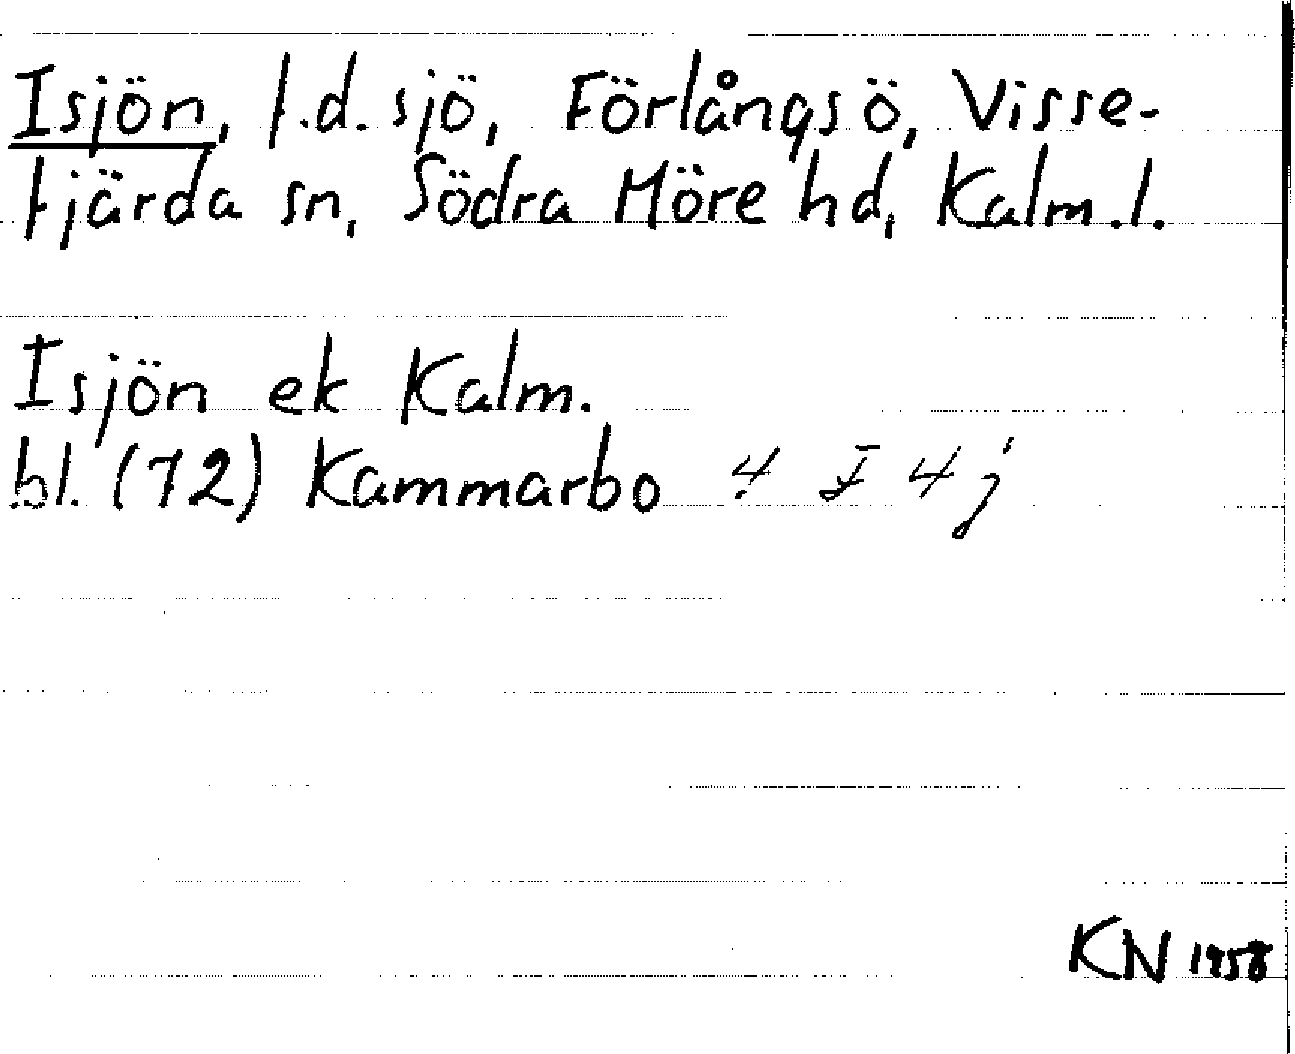 Isjön, f.d. sjö, Förlångsö, Visse-
fjärda sn, Södra Möre hd, Kalm.l.
Isjön ek Kalm.
bl. (72) Kammarbo 4 I 4 j
KN 1958